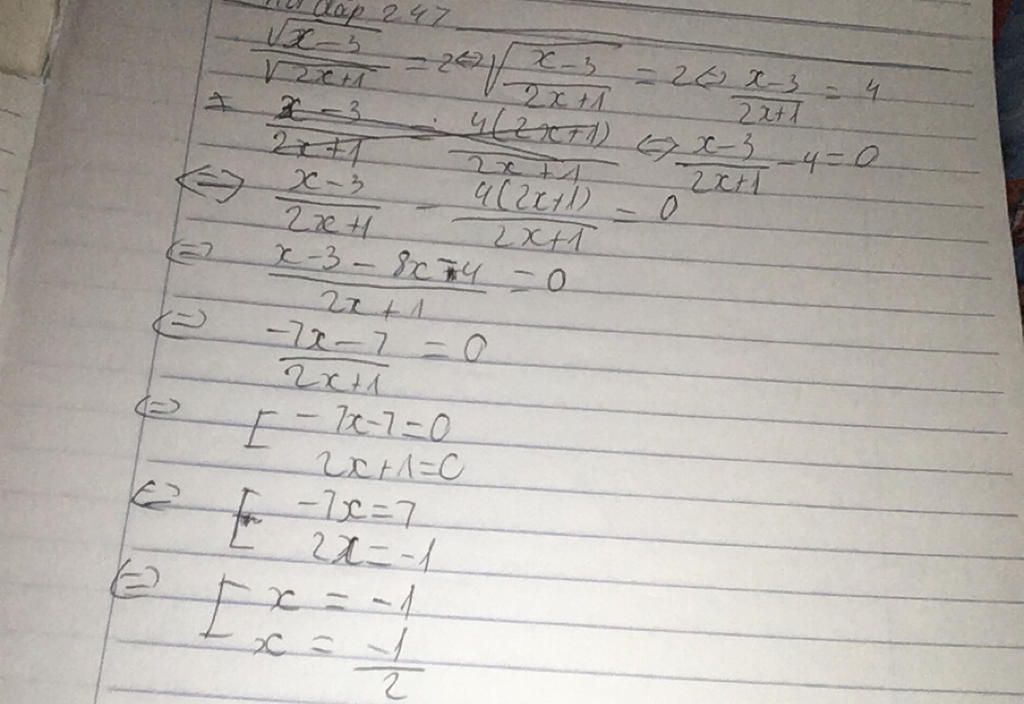 đáp 247
√x-3/√2x+1 = 2 <=> √(x-3/2x+1) = 2 <=> x-3/2x+1 = 4
<=> x-3/2x+1 - 4 = 0
<=> x-3/2x+1 - 4(2x+1)/2x+1 = 0
<=> x-3-8x-4/2x+1 = 0
<=> -7x-7/2x+1 = 0
<=> [ -7x-7=0
2x+1=0
<=> [ -7x=7
2x=-1
<=> [ x = -1
x = -1/2